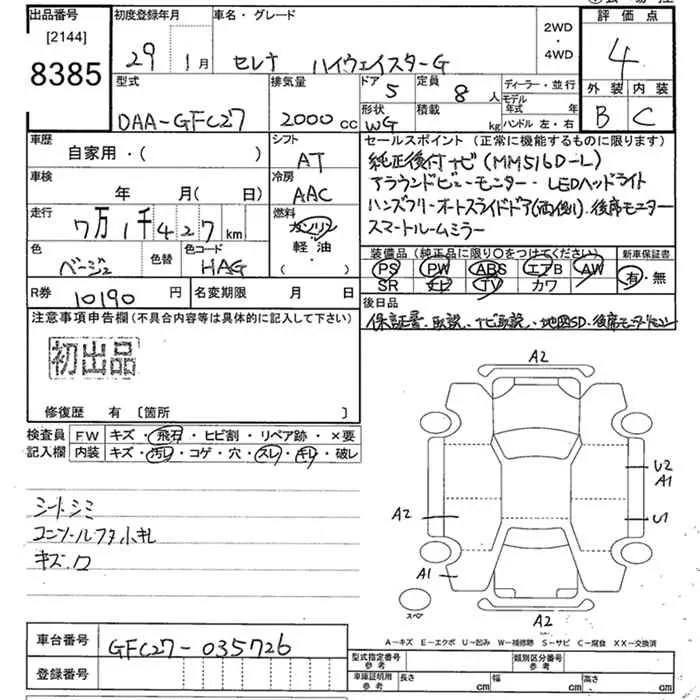 出品番号
[2144]
8385
初度登録年月
29 1月
車名・グレード
セレナ ハイウェイスターG
2WD
・
4WD
評価点
4
外装 内装
B C
型式
DAA-GFC27
排気量
2000cc
ドア 5
形状 WG
定員 8人
積載 kg
ディーラー・並行
モデル年式 年
ハンドル 左・右
車歴
自家用・( )
シフト
AT
車検
年 月( 日)
冷房
AAC
走行
7万1千427km
燃料
ガソリン
軽油
( )
色
ベージュ
色替
色コード
HAG
R券
10190円
名変期限 月 日
セールスポイント(正常に機能するものに限ります)
純正後付ナビ(MM516D-L)
アラウンドビューモニター・LEDヘッドライト
ハンズフリーオートスライドドア(両側)、後席モニター
スマートルームミラー
装備品(純正品に限り○をつけてください)
PS PW ABS エアB AW
SR ナビ TV カワ
新車保証書
有・無
後日品
保証書、取説、ナビ取説、地図SD、後席モニターリモコン
注意事項申告欄(不具合内容等は具体的に記入して下さい)
初出品
修復歴 有 [箇所 ]
検査員記入欄
FW キズ・飛石・ヒビ割・リペア跡・×要
内装 キズ・汚レ・コゲ・穴・スレ・キレ・破レ
シートシミ
コンソールフタ小キレ
キズ、ワ
A2
U2
A1
A2
U1
A1
スペア
A2
A-キズ E-エクボ U-凹み W-補修跡 S-サビ C-腐食 XX-交換済
車台番号
GFC27-035726
登録番号
型式指定番号
参考
類別区分番号
参考
車庫証明用
参考
長さ cm
幅 cm
高さ cm